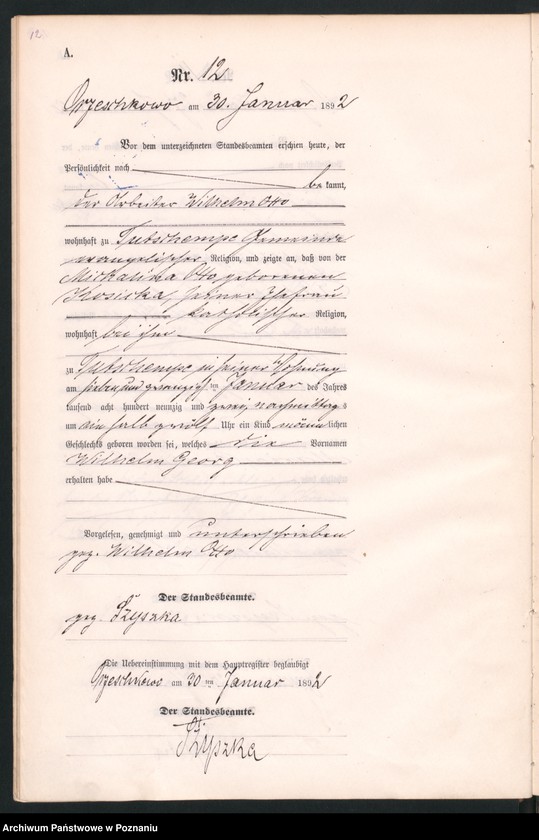 12
A.
Nr. 12
Orzeschkowo am 30. Januar 1892
Vor dem unterzeichneten Standesbeamten erschien heute, der
Persönlichkeit nach
bekannt,
der Arbeiter Wilhelm Otto
wohnhaft zu Gemeinde
evangelischer Religion, und zeigte an, daß von der
Michalina Otto, geborenen
seiner Ehefrau
katholischer Religion,
wohnhaft bei ihm
zu in seiner Wohnung
am sieben und zwanzigsten Januar des Jahres
tausend acht hundert neunzig und zwei nachmittags
um ein halb zwölf Uhr ein Kind männlichen
Geschlechts geboren worden sei, welches die Vornamen
Wilhelm Georg
erhalten habe
Vorgelesen, genehmigt und unterschrieben
gez. Wilhelm Otto
Der Standesbeamte.
gez.
Die Uebereinstimmung mit dem Hauptregister beglaubigt
Orzeschkowo am 30ten Januar 1892
Der Standesbeamte.
Archiwum Państwowe w Poznaniu